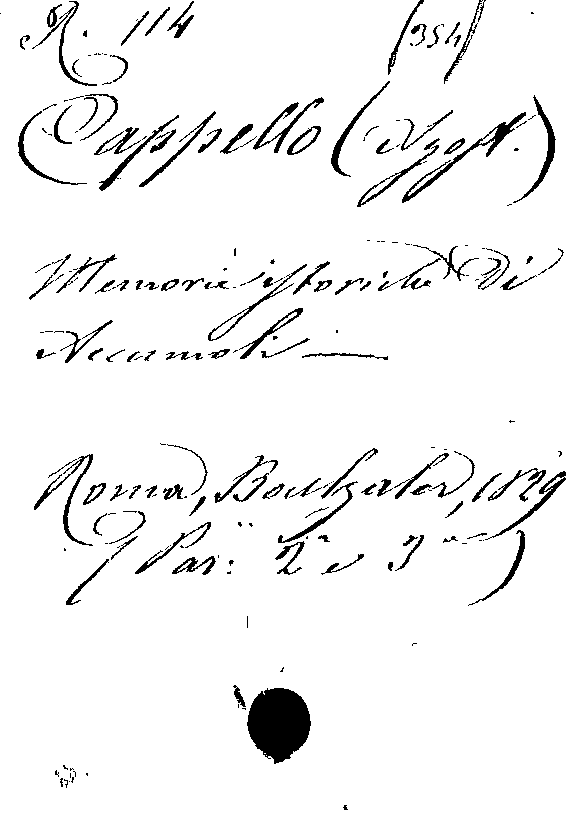 R. 114 (354)
Cappello (Agost.)
Memorie istoriche di
Accumoli —
Roma, Boulzaler, 1829
(Par: 2ª e 3ª)